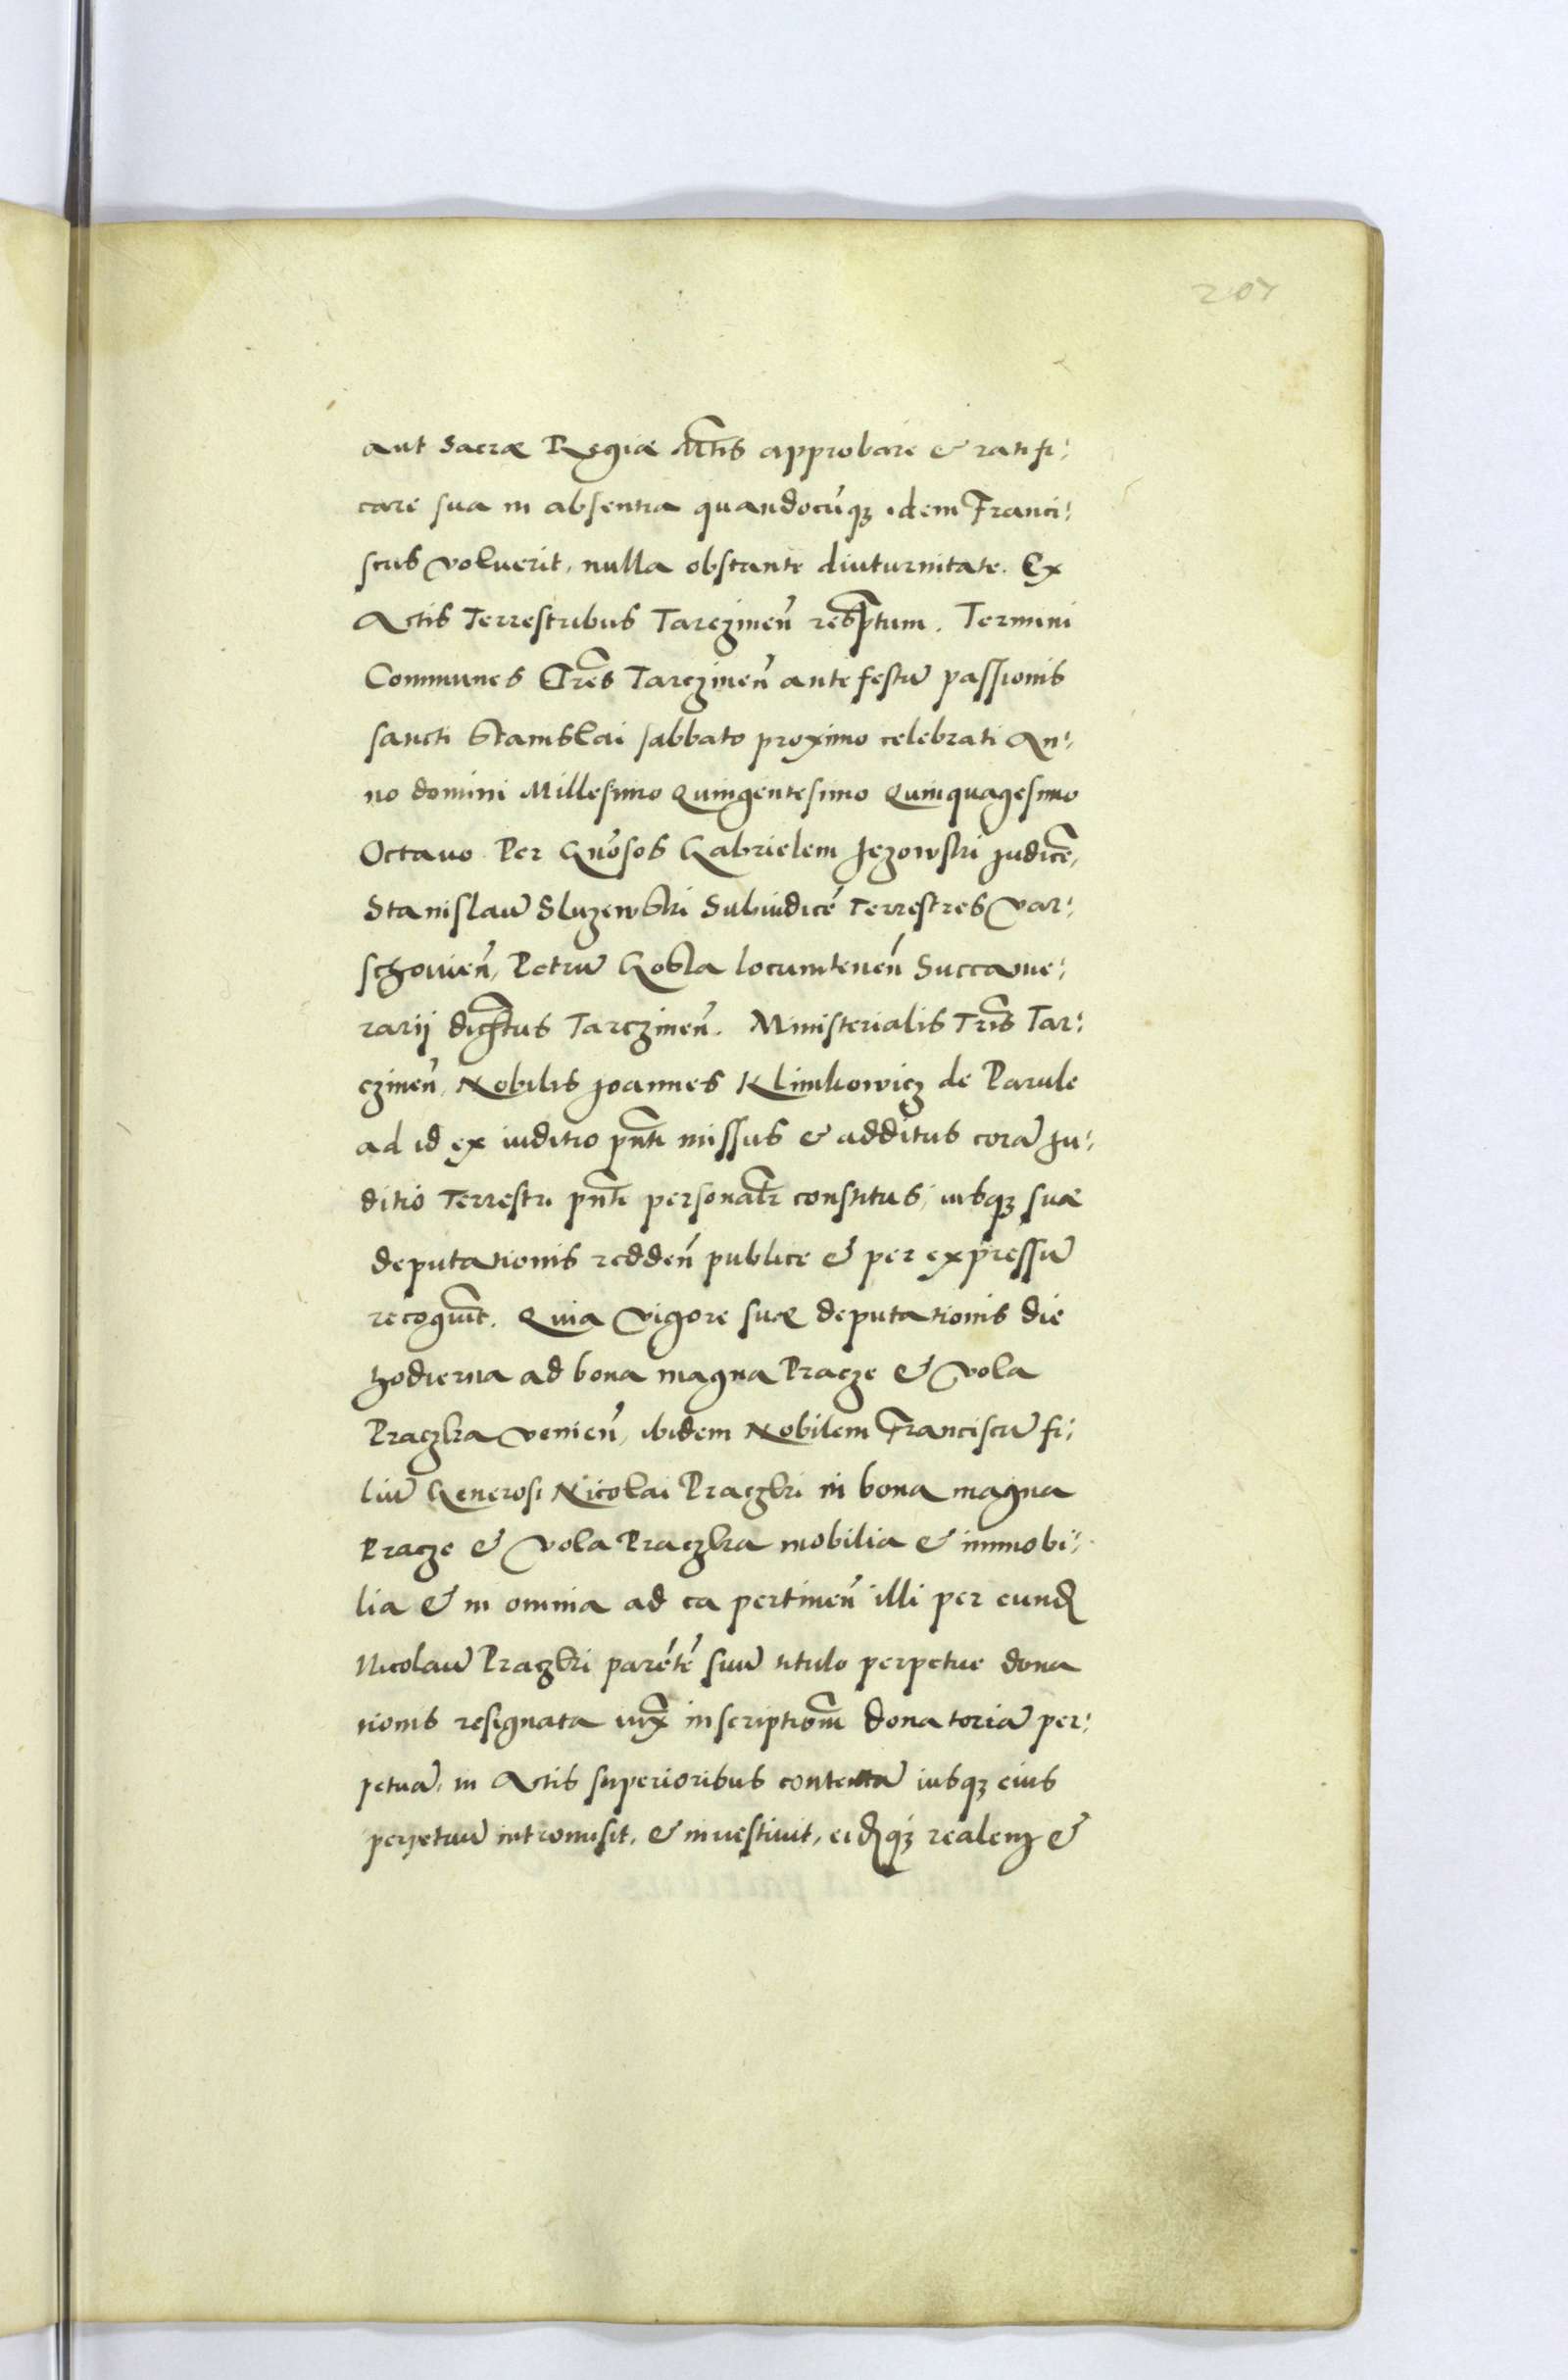 207
aut Sacræ Regiæ Mtis approbare & ratifi:
care sua in absentia quandocūqz idem Franci:
scus voluerit, nulla obstante diuturnitate. Ex
Actis Terrestribus Tarczineñ rescptum. Termini
Communes Tres Tarczineñ ante festū passionis
sancti Stanislai sabbato proximo celebrati An:
no domini Millesimo Quingentesimo Quinquagesimo
Octauo Per Gnosos Gabrielem Jezowski Judicē,
Stanislaū Sluzewski Subiudicē Terrestres Var:
schouieñ, Petrū Gosla locumteneñ Succame:
rarij Tarczineñ. Ministerialis Tris Tar:
czineñ, Nobilis Joannes Klimkowicz de Parule
ad id ex iuditio pnti missus & additus corā Ju:
ditio Terrestri pnti personalr constitus, iusqz suæ
deputationis reddeñ publice & per expressū
recognuit. Quia vigore suæ deputationis die
hodierna ad bona magna Pracze & Vola
Praczka venieñ, ibidem Nobilem Franciscū fi:
liū Generosi Nicolai Praczki in bona magna
Pracze & Vola Praczka mobilia & immobi:
lia & in omnia ad ea pertineñ illi per eund
Nicolaū Praczki parētē suū titulo perpetue dona
tionis resignata iux inscriptiom donatoriā per:
petuā, in Actis superioribus contentā iusqz eius
perpetuū intromisit, & inuestiuit, eidqz realem &